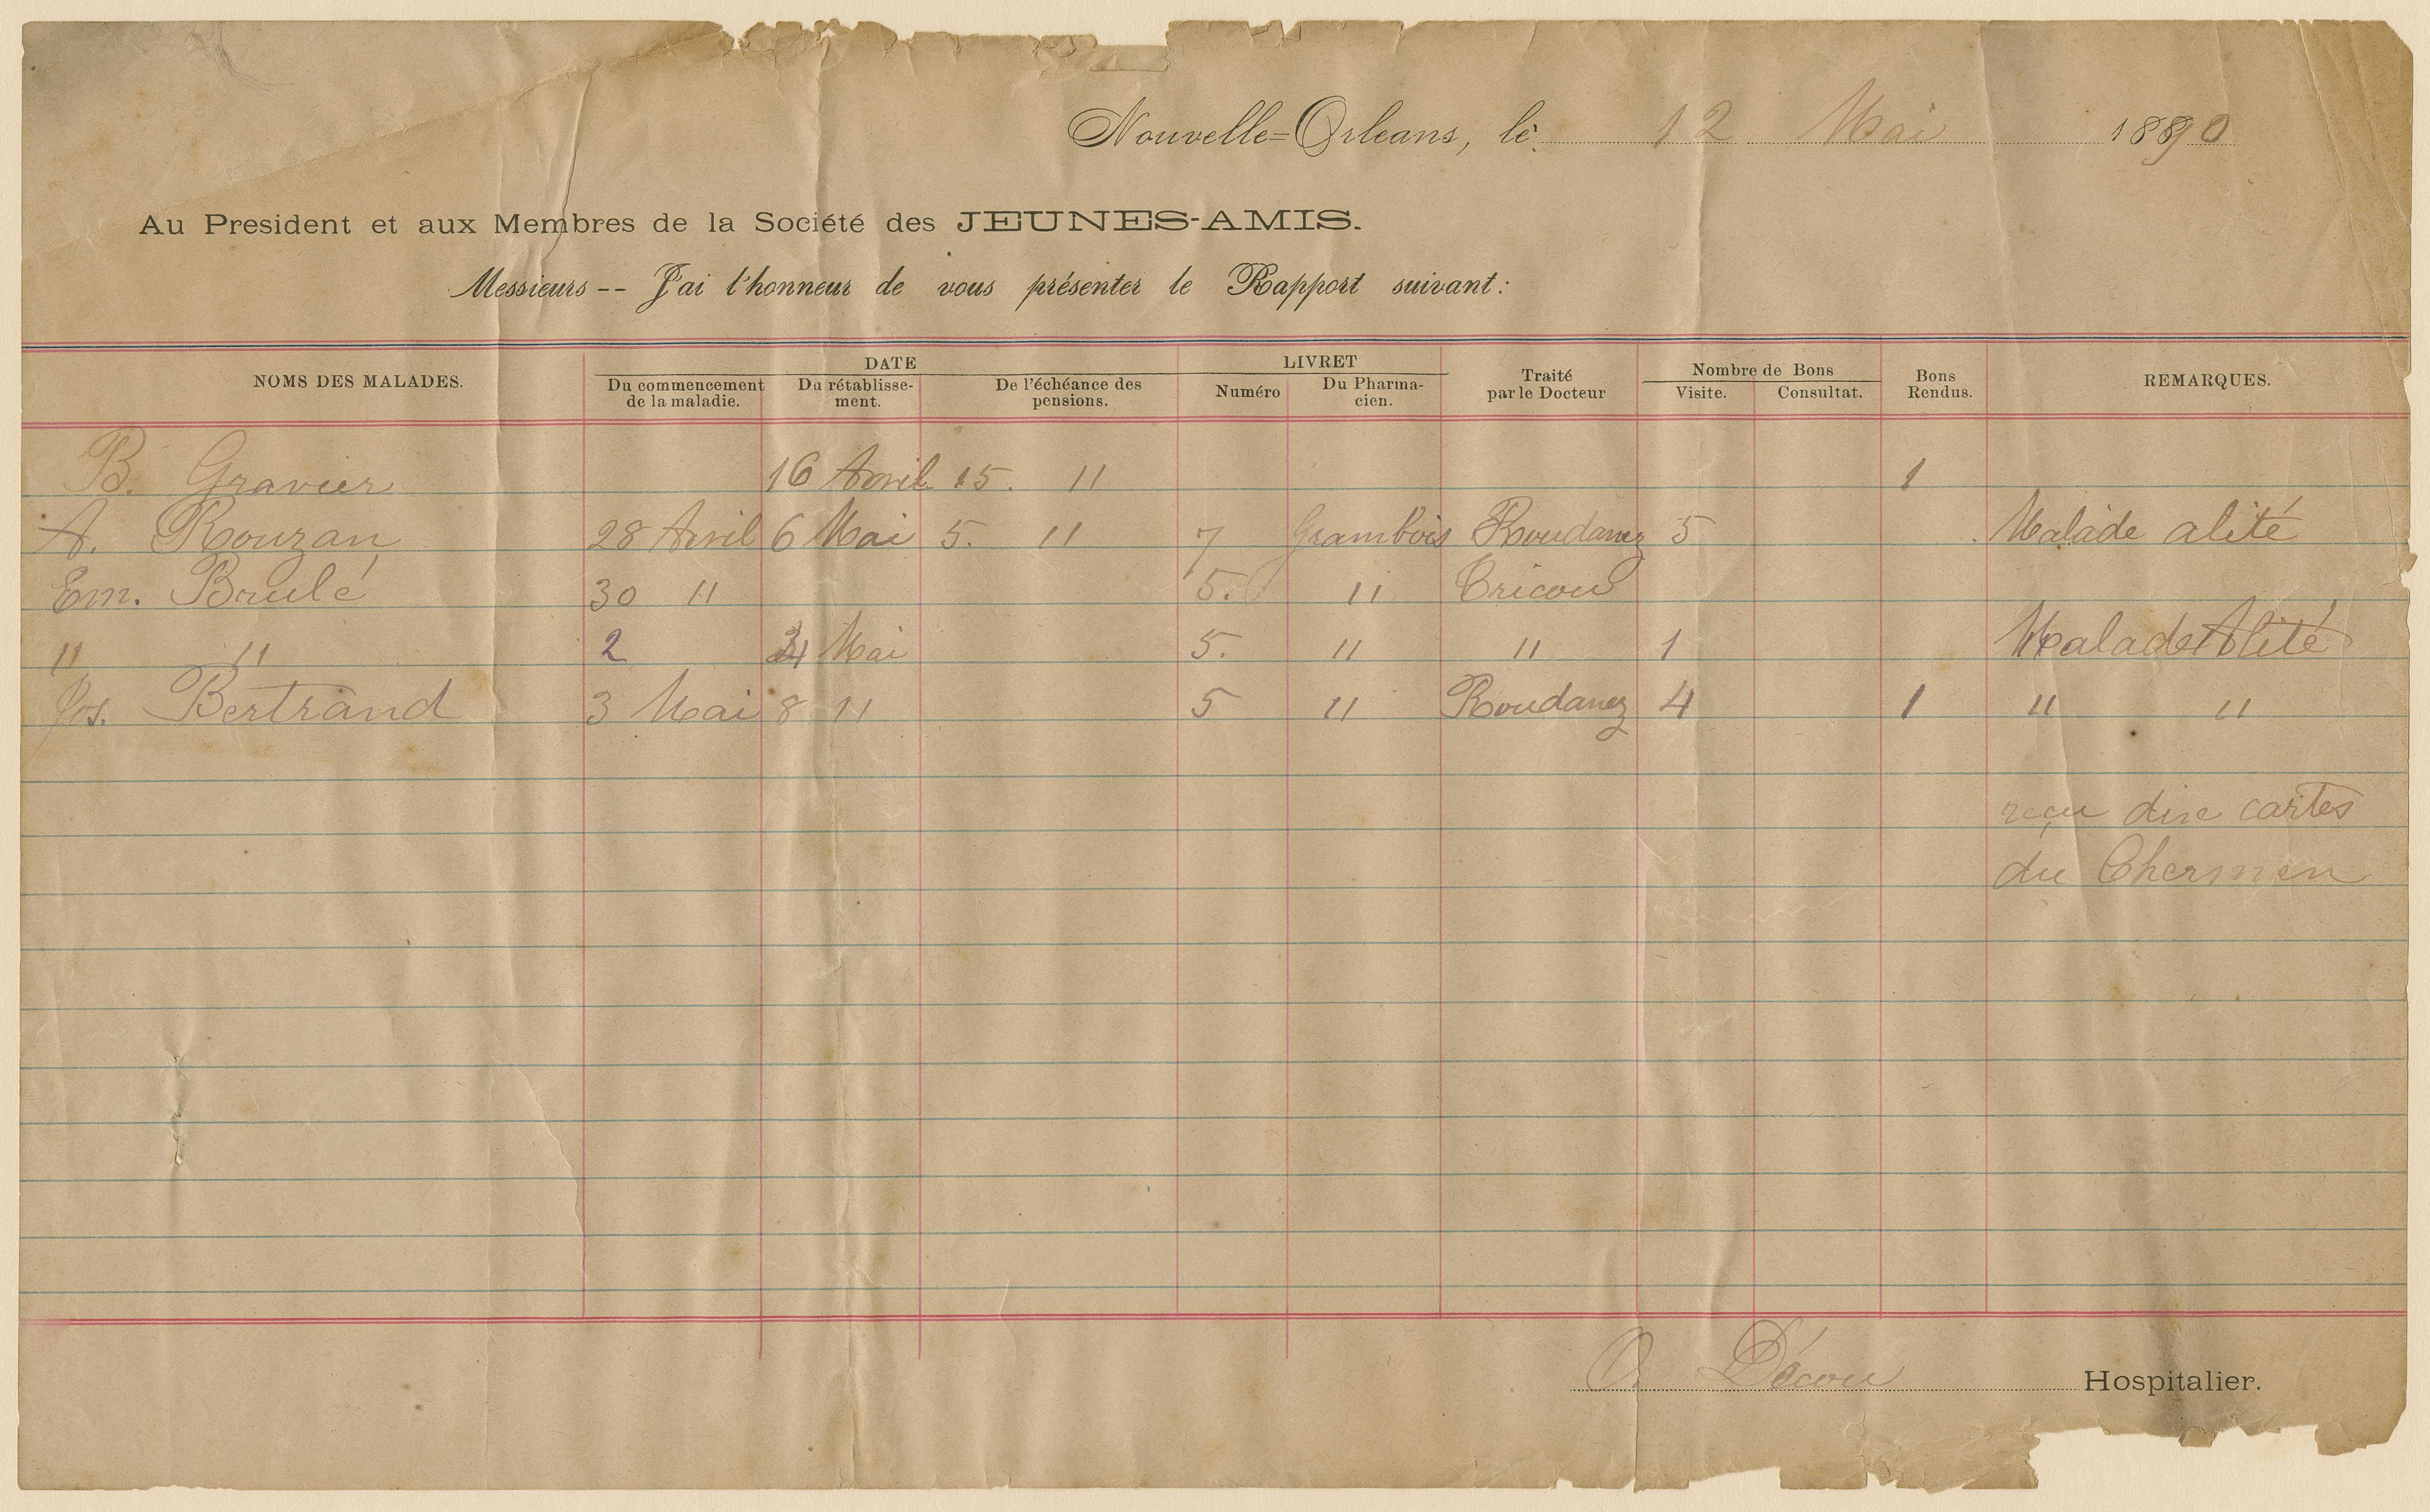 Nouvelle=Orleans, le 12 Mai 1890
Au President et aux Membres de la Société des JEUNES-AMIS.
Messieurs -- J'ai l'honneur de vous présenter le Rapport suivant:
NOMS DES MALADES. DATE LIVRET Traité par le Docteur Nombre de Bons Bons Rendus. REMARQUES.
Du commencement de la maladie. Du rétablisse- ment. De l'échéance des pensions. Numéro Du Pharma- cien. Visite. Consultat.
B. Gravier 16 Avril 15. " 1
A. Rouzan 28 Avril 6 Mai 5. " 7 Grambois Roudanez 5 Malade alité
Em. Brulé 30 " 5. " Tricou
" " 2 Mai 5. " " 1 Malade Alité
Jos. Bertrand 3 Mai 8 " 5 " Roudanez 4 1 " "
reçu dix cartes
du Chermen
O. Décou Hospitalier.